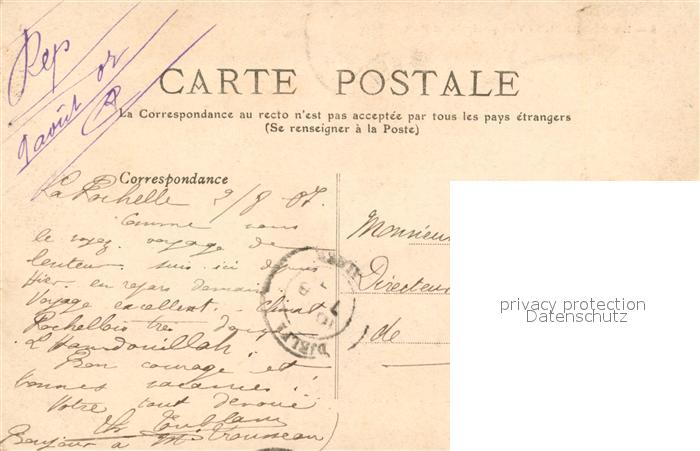 Rep
9 août 07
CARTE POSTALE
La Correspondance au recto n'est pas acceptée par tous les pays étrangers
(Se renseigner à la Poste)
Correspondance
La Rochelle 2/8 07.
Comme vous
le voyez. voyage de
lenteur. suis ici depuis
Hier. en repars demain
Voyage excellent. Climat
Rochellois très doux
L'Hamdouillah!
Bon courage et
bonnes vacances!!
Votre tout dévoué
Bonjour à Mr Trousseau
Monsieur
Directeur
de
DJELFA
ALGER
privacy protection
Datenschutz